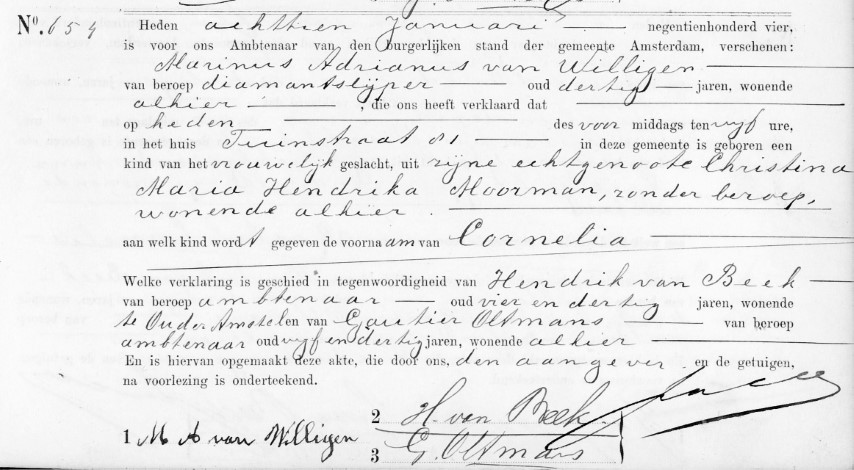 No. 654 Heden achttien Januari negentienhonderd vier,
is voor ons Ambtenaar van den burgerlijken stand der gemeente Amsterdam, verschenen:
Marinus Adrianus van Willigen
van beroep diamantslijper oud dertig jaren, wonende
alhier, die ons heeft verklaard dat
op heden des voor middags ten vijf ure,
in het huis Tuinstraat 81 in deze gemeente is geboren een
kind van het vrouwelijk geslacht, uit zijne echtgenoote Christina
Maria Hendrika Moorman, zonder beroep,
wonende alhier.
aan welk kind wordt gegeven de voornaam van Cornelia
Welke verklaring is geschied in tegenwoordigheid van Hendrik van Beek
van beroep ambtenaar oud vier en dertig jaren, wonende
te Ouder Amstel en van Gautier Oltmans van beroep
ambtenaar oud vijf en dertig jaren, wonende alhier
En is hiervan opgemaakt deze akte, die door ons, den aangever en de getuigen,
na voorlezing is onderteekend.
2 H. van Beek
1 M A van Willigen
3 G. Oltmans